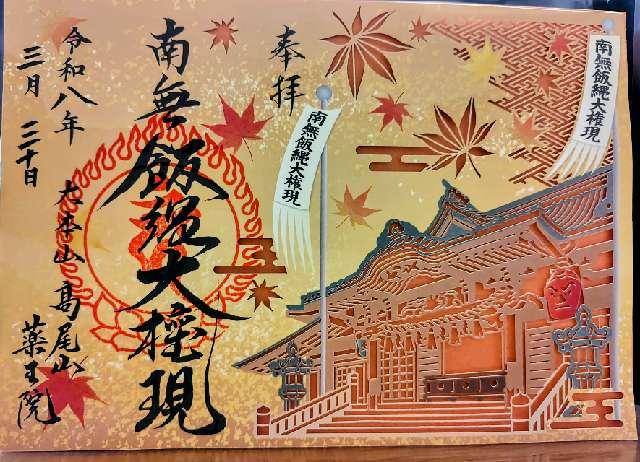 奉拝
南無飯縄大権現
令和八年
三月三十日
大本山高尾山
薬王院
南無飯縄大権現
南無飯縄大権現